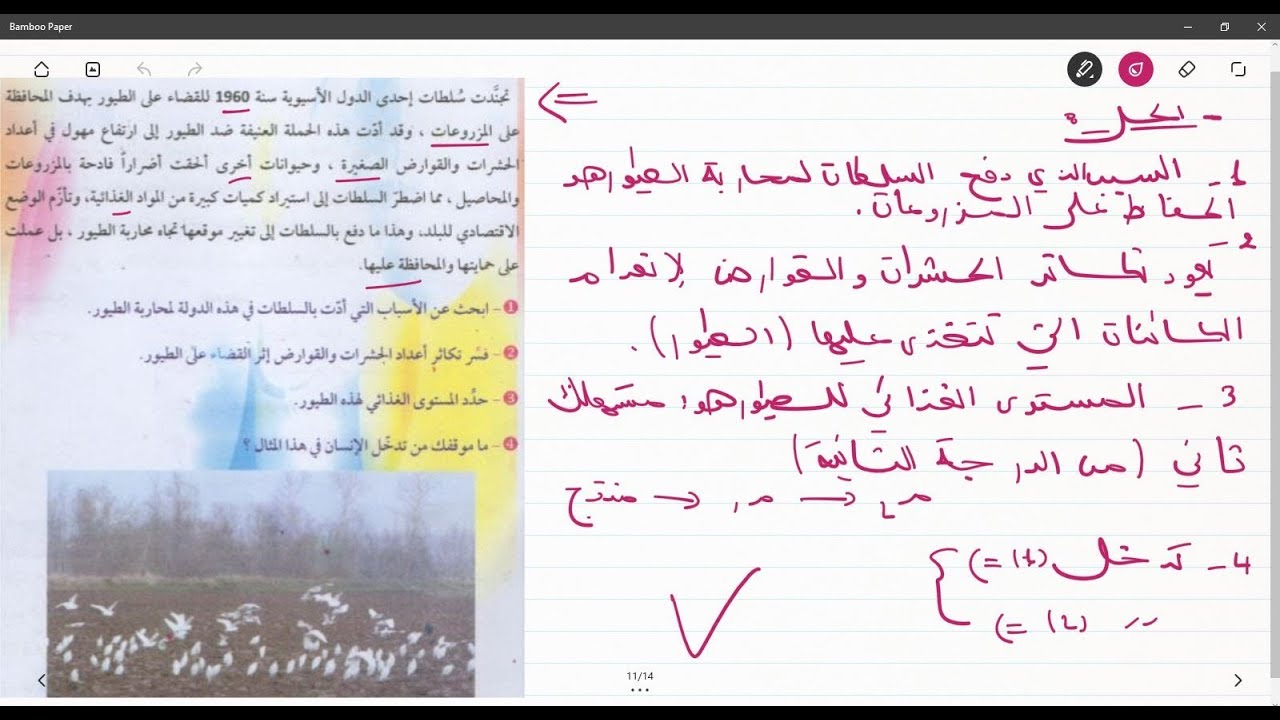 Bamboo Paper
تجنَّدت سُلطات إحدى الدول الأسيوية سنة 1960 للقضاء على الطيور بهدف المحافظة
على المزروعات ، وقد أدّت هذه الحملة العنيفة ضد الطيور إلى ارتفاع مهول في أعداد
الحشرات والقوارض الصغيرة ، وحيوانات أخرى ألحقت أضراراً فادحة بالمزروعات
والمحاصيل ، مما اضطرّ السلطات إلى استيراد كميات كبيرة من المواد الغذائية، وتأزّم الوضع
الاقتصادي للبلد، وهذا ما دفع بالسلطات إلى تغيير موقعها تجاه محاربة الطيور ، بل عملت
على حمايتها والمحافظة عليها.
1 - ابحث عن الأسباب التي أدّت بالسلطات في هذه الدولة لمحاربة الطيور.
2 - فسّر تكاثر أعداد الحشرات والقوارض إثر القضاء على الطيور.
3 - حدِّد المستوى الغذائي لهذه الطيور.
4 - ما موقفك من تدخّل الإنسان في هذا المثال ؟
- الحل :
1 - السبب الذي دفع السلطات لمحاربة الطيور هو
الحفاظ على المزروعات.
2 - يعود تكاثر الحشرات والقوارض لإنعدام
الكائنات التي تتغذى عليها (الطيور).
3 - المستوى الغذائي للطيور هو: مستهلك
ثاني (من الدرجة الثانية)
منتج → م1 → م2
4 - تدخل (1) =)
(2) =)
11/14